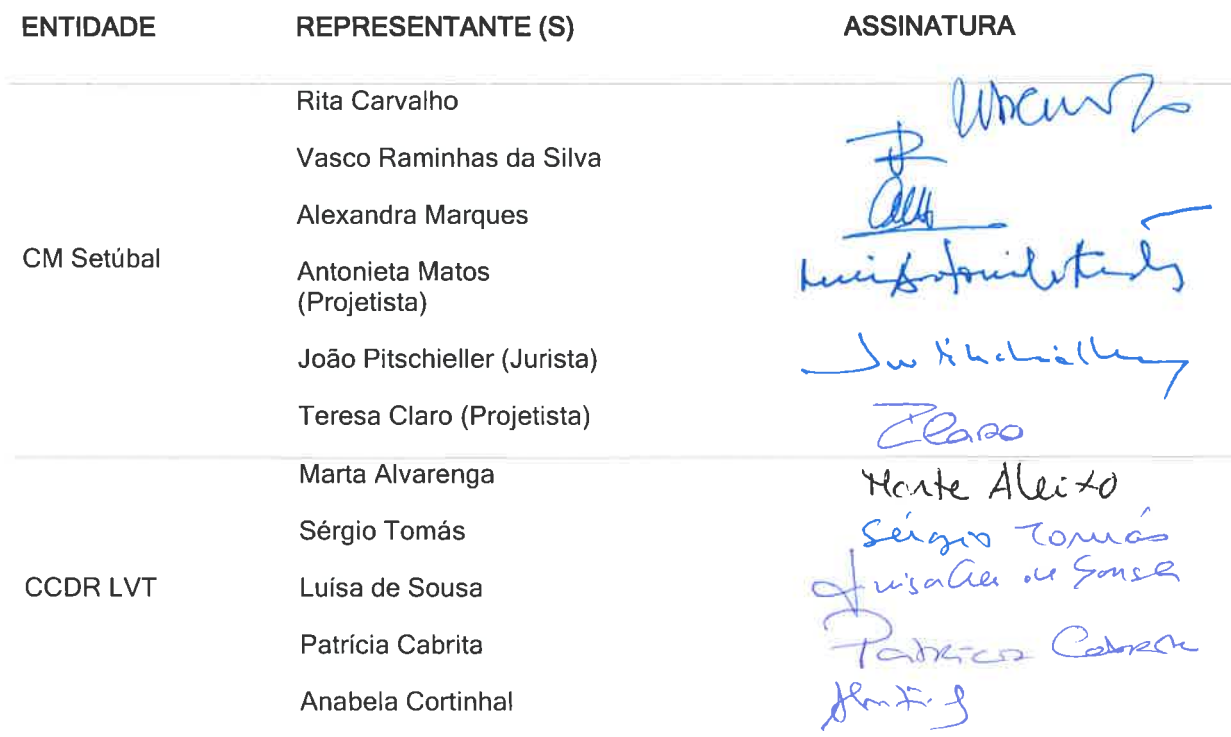 ENTIDADE REPRESENTANTE (S) ASSINATURA
Rita Carvalho
Vasco Raminhas da Silva
Alexandra Marques
CM Setúbal
Antonieta Matos
(Projetista)
João Pitschieller (Jurista)
Teresa Claro (Projetista)
Claro
Marta Alvarenga
Aleixo
Sérgio Tomás Sérgio Tomás
CCDR LVT Luísa de Sousa de Sousa
Patrícia Cabrita Patrícia Cabrita
Anabela Cortinhal